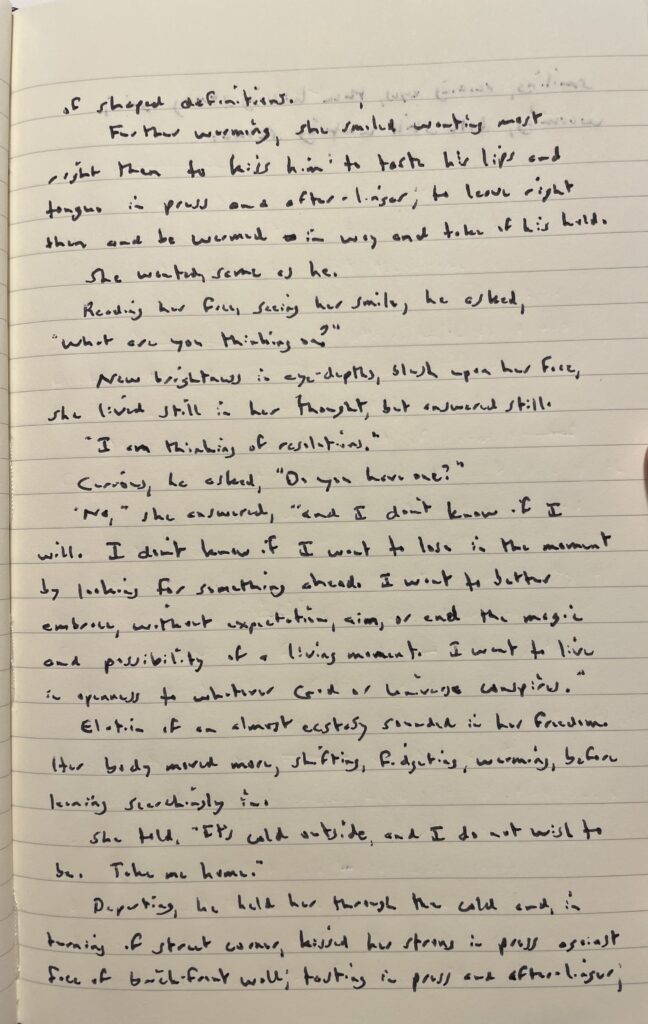 of shaped definitions.
Further warming, she smiled wanting most
right then to kiss him: to taste his lips and
tongue in press and after-linger; to leave right
then and be warmed in way and take of his hold.
She wanted same as he.
Reading her face, seeing her smile, he asked,
"What are you thinking on?"
New brightness in eye-depths, blush upon her face,
she lived still in her thought, but answered still.
"I am thinking of resolutions."
Curious, he asked, "Do you have one?"
"No," she answered, "and I don't know if I
will. I don't know if I want to lose in the moment
by looking for something ahead. I want to better
embrace, without expectation, aim, or end the magic
and possibility of a living moment. I want to live
in openness to whatever God or Universe conspires."
Elation of an almost ecstasy sounded in her freedom.
Her body moved more, shifting, fidgeting, warming, before
leaning searchingly in.
She told, "It's cold outside, and I do not wish to
be. Take me home."
Departing, he held her through the cold and, in
turning of street corner, kissed her strong in press against
face of brick-front wall; tasting in press and after-linger;